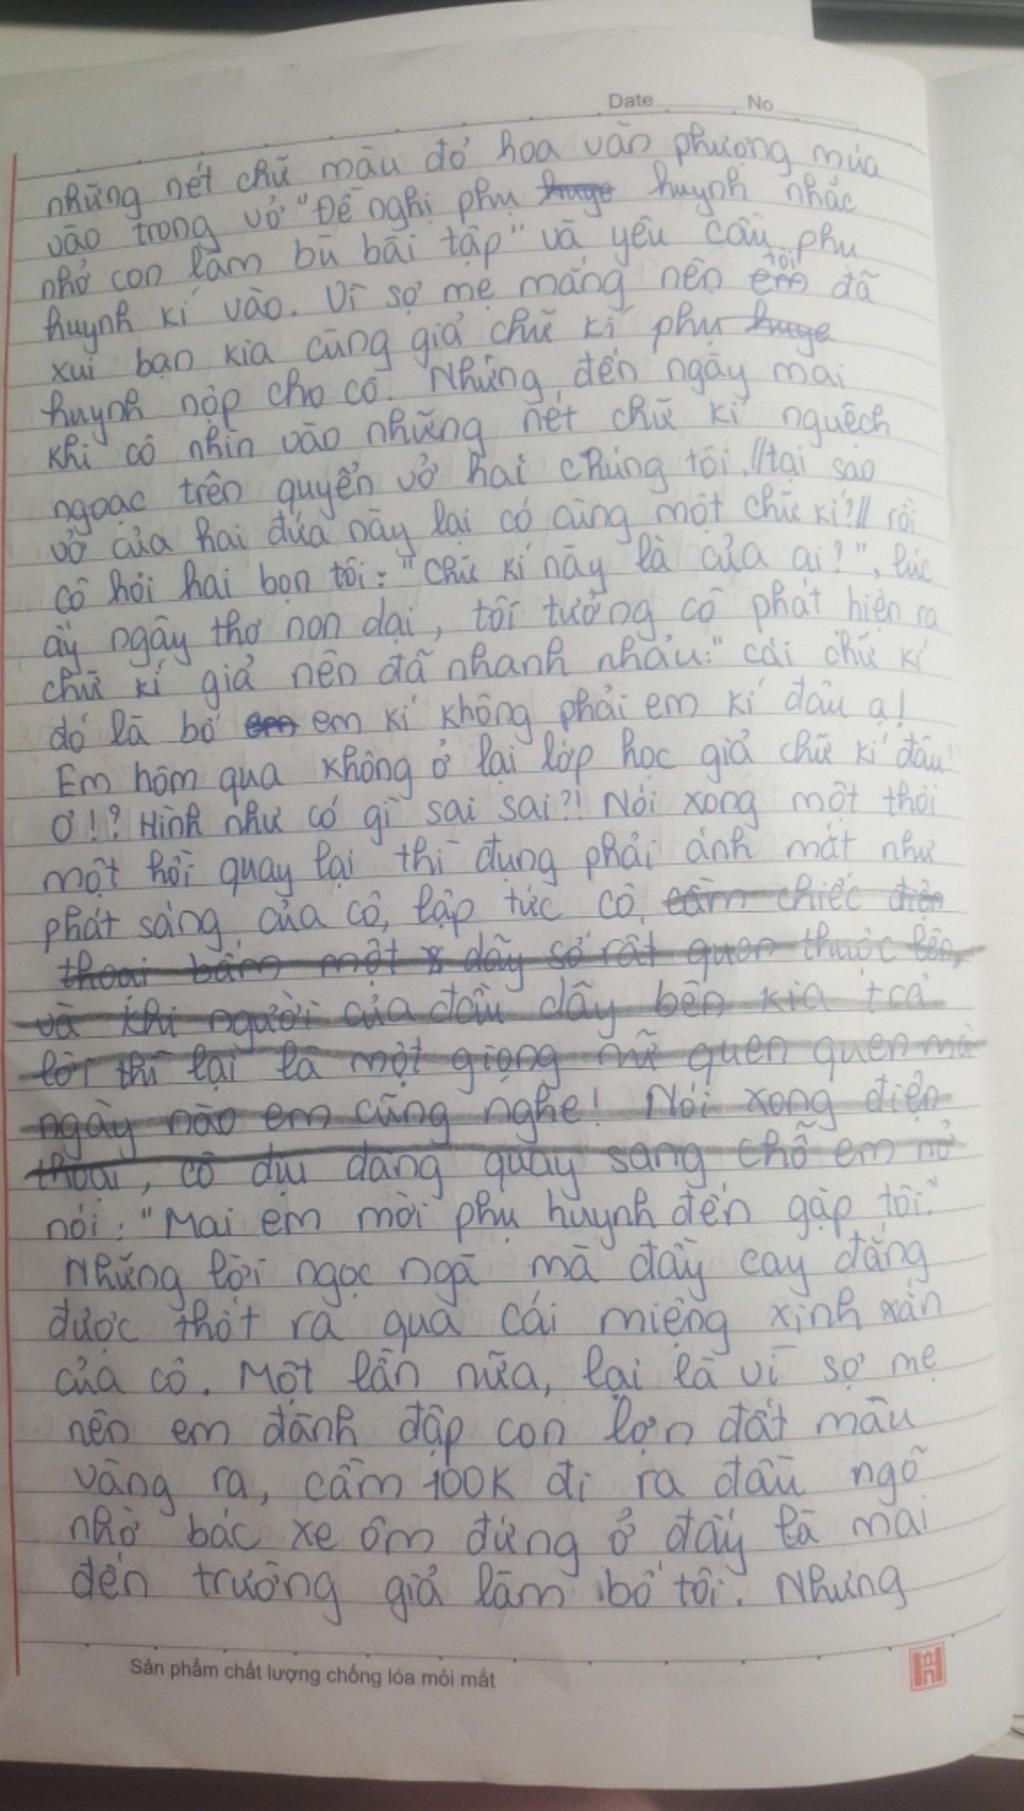 Date No
những nét chữ màu đỏ hoa văn phượng múa
vào trong vở "Đề nghị phụ huyge huynh nhắc
nhở con làm bù bài tập" và yêu cầu phụ
tôi
huynh kí vào. Vì sợ mẹ mắng nên em đã
xui bạn kia cùng giả chữ kí phụ huyge
huynh nộp cho cô. Nhưng đến ngày mai
khi cô nhìn vào những nét chữ kí nguệch
ngoạc trên quyển vở hai chúng tôi. //tại sao
vở của hai đứa này lại có cùng một chữ kí?// rồi
cô hỏi hai bọn tôi: "Chữ kí này là của ai?", lúc
ấy ngây thơ non dại, tôi tưởng cô phát hiện ra
chữ kí giả nên đã nhanh nhảu: "cái chữ kí
đó là bố em em kí không phải em kí đâu ạ!
Em hôm qua không ở lại lớp học giả chữ kí đâu!
Ơ!? Hình như có gì sai sai?! Nói xong một thôi
một hồi quay lại thì đụng phải ánh mắt như
phát sáng của cô, lập tức cô cầm chiếc điện
thoại bấm một dãy số rất quen thuộc lên,
và khi người của đầu dây bên kia trả
lời thì lại là một giọng nữ quen quen mà
ngày nào em cũng nghe! Nói xong điện
thoại, cô dịu dàng quay sang chỗ em nở
nói: "Mai em mời phụ huynh đến gặp tôi."
Những lời ngọc ngà mà đầy cay đắng
được thốt ra qua cái miệng xinh xắn
của cô. Một lần nữa, lại là vì sợ mẹ
nên em đành đập con lợn đất màu
vàng ra, cầm 100K đi ra đầu ngõ
nhờ bác xe ôm đứng ở đấy là mai
đến trường giả làm bố tôi. Nhưng
Sản phẩm chất lượng chống lóa mỏi mắt